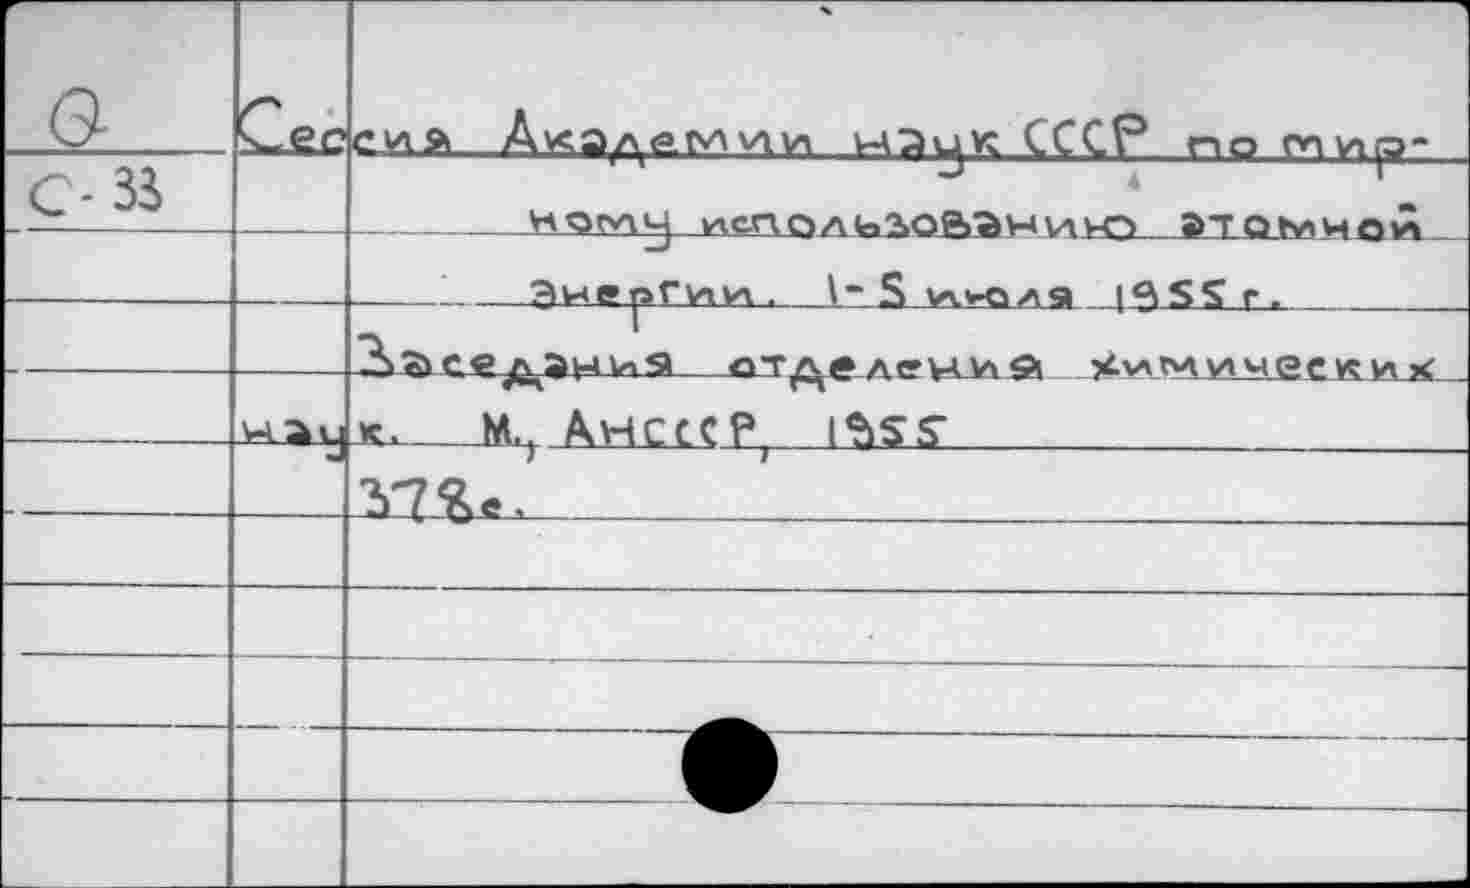 Сессия Академии наук СССР по мир-
С-33
ному использованию атомной
энергии. 1-5 июля 1955 г.
Заседания отделения химических
наук. М., АНСССР, 1955
378с.